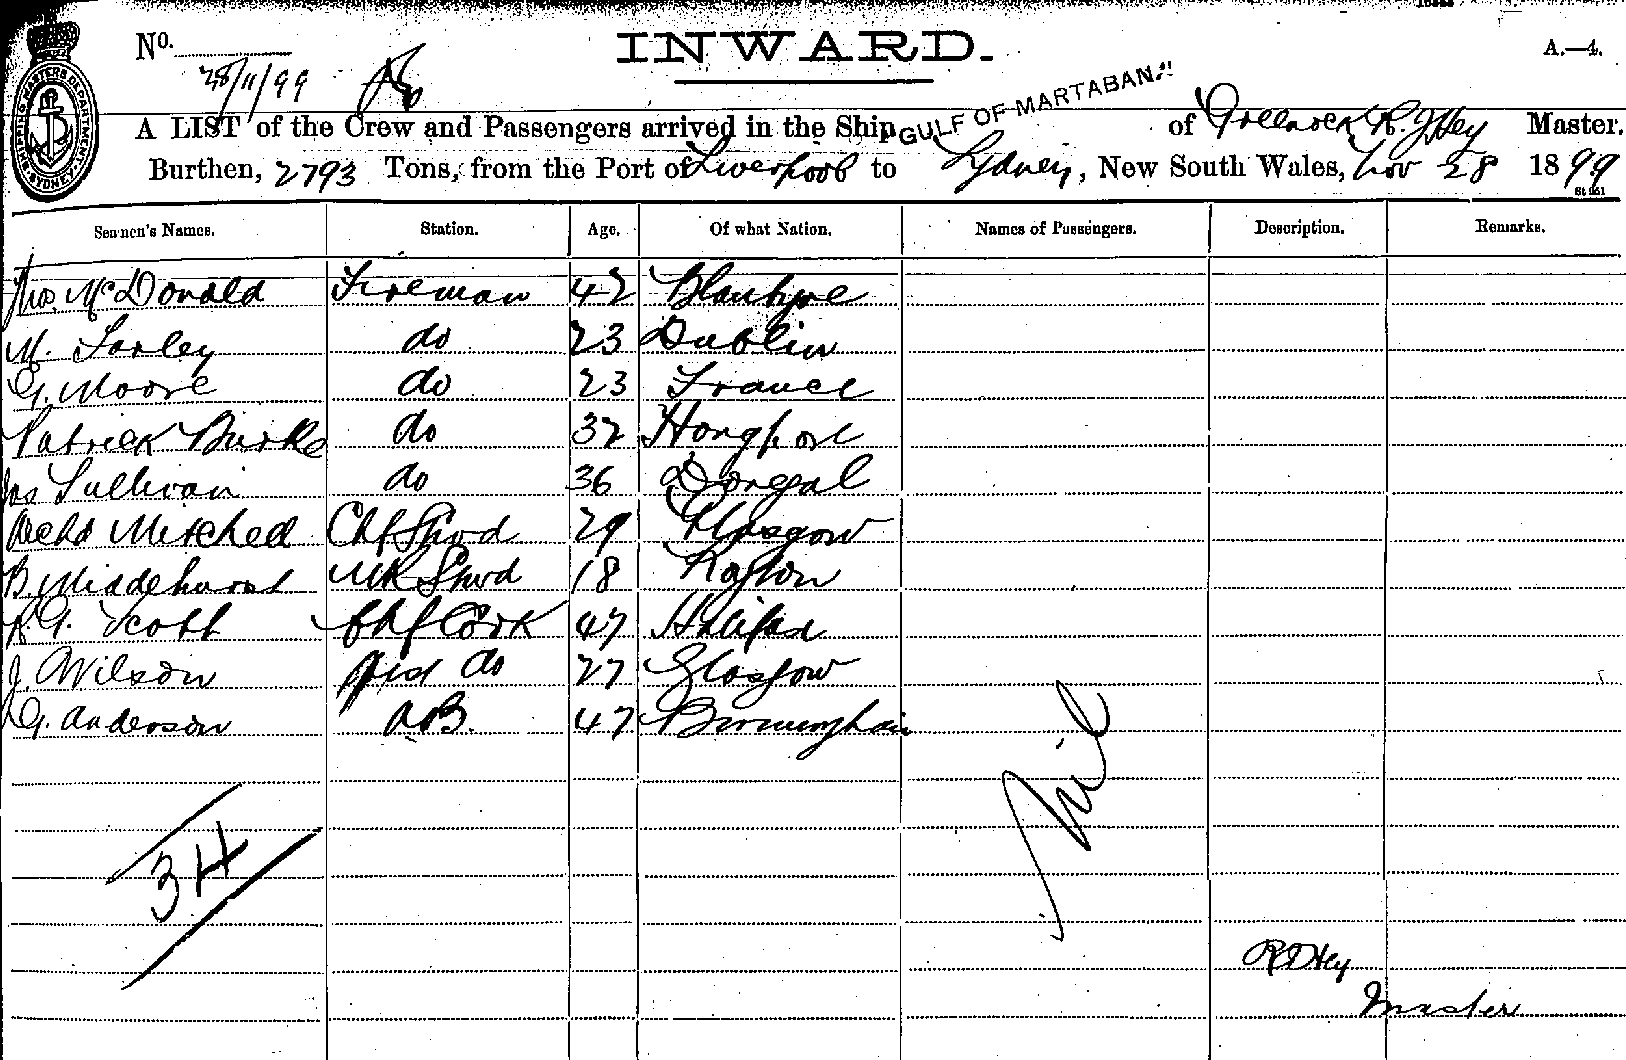 INWARD.
No.
A.—4.
28/11/99
SHIPPING MASTERS DEPARTMENT SYDNEY
A LIST of the Crew and Passengers arrived in the Ship "GULF OF MARTABAN." of Greenock R. J Hey Master.
Burthen, 2793 Tons, from the Port of Liverpool to Sydney, New South Wales, Nov 28 1899
Seamen's Names. Station. Age. Of what Nation. Names of Passengers. Description. Remarks.
Thos. McDonald Fireman 42 Blantyre
M. Farley do 23 Dublin
G. Moore do 23 France
Patrick Burke do 32
Jas Sullivan do 36 Donegal
Archd Mitchell Chf Stwd 29 Glasgow
B. Middlehurst Stwd 18
R G. Scott Chf Cook 47 Halifax
J. Wilson do 27 Glasgow
G. Anderson A.B. 47 Birmingham
Nil
34
R J Hey
Master